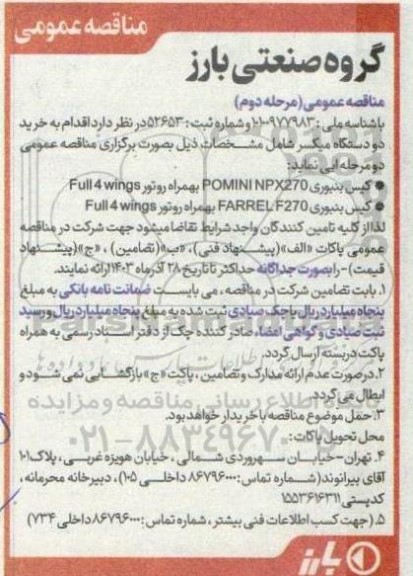 مناقصه عمومی
گروه صنعتی بارز
مناقصه عمومی (مرحله دوم)
باشناسه ملی: ۱۰۱۰۰۹۷۷۹۸۳ و شماره ثبت: ۵۲۶۵۳ در نظر دارد اقدام به خرید
دو دستگاه میکسر شامل مشخصات ذیل بصورت برگزاری مناقصه عمومی
دو مرحله ایی نماید:
● کیس بنبوری POMINI NPX270 بهمراه روتور Full 4 wings
● کیس بنبوری FARREL F270 بهمراه روتور Full 4 wings
لذا از کلیه تامین کنندگان واجد شرایط تقاضا میشود جهت شرکت در مناقصه
عمومی پاکات «الف» (پیشنهاد فنی)، «ب» (تضامین)، «ج» (پیشنهاد
قیمت) - را بصورت جداگانه حداکثر تا تاریخ ۲۸ آذر ماه ۱۴۰۳ ارائه نمایند.
۱. بابت تضامین شرکت در مناقصه، می بایست ضمانت نامه بانکی به مبلغ
پنجاه میلیارد ریال یا چک صیادی ثبت شده به مبلغ پنجاه میلیارد ریال و رسید
ثبت صیادی و گواهی امضاء صادر کننده چک از دفتر اسناد رسمی به همراه
پاکت در بسته ارسال گردد.
۲. در صورت عدم ارائه مدارک و تضامین، پاکت «ج» بازگشایی نمی شود و
ابطال می گردد.
۳. حمل موضوع مناقصه با خریدار خواهد بود.
محل تحویل پاکات:
۴. تهران - خیابان سهروردی شمالی، خیابان هویزه غربی، پلاک ۱۰۱
آقای بیرانوند (شماره تماس: ۸۶۷۹۶۰۰۰ داخلی ۱۰۵)، دبیرخانه محرمانه،
کدپستی ۱۵۵۳۶۱۶۳۱۱
۵. (جهت کسب اطلاعات فنی بیشتر، شماره تماس: ۸۶۷۹۶۰۰۰ داخلی ۷۳۴)
بارز
۰۲۱-۸۸۳۴۹۶۷۰